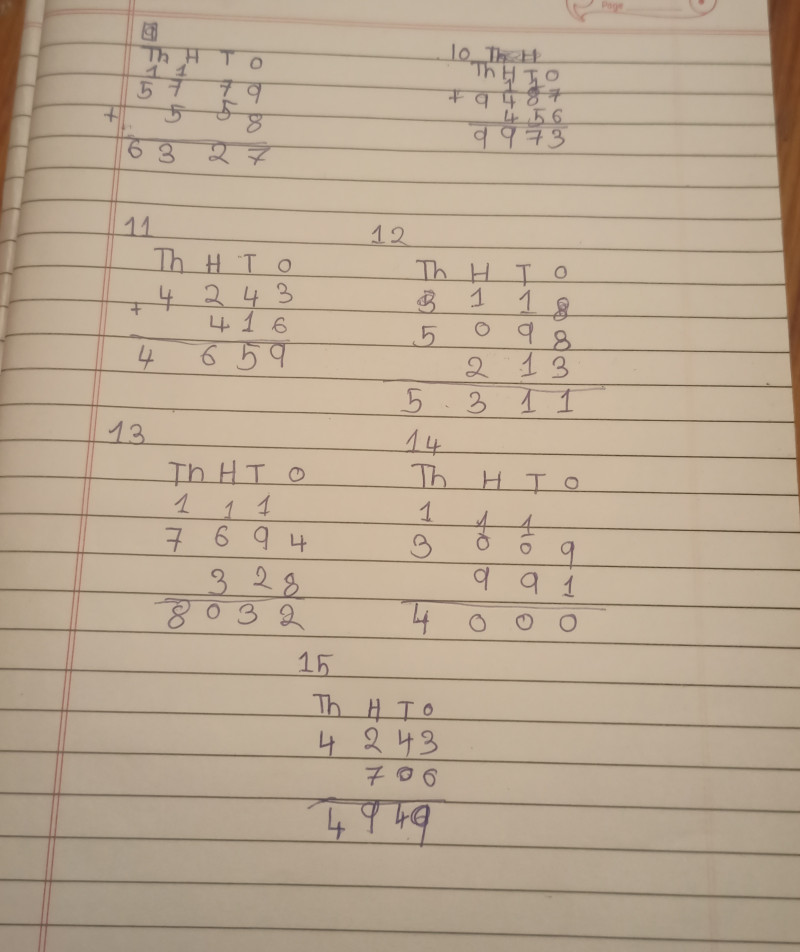 Page
9
Th H T O
1 1
5 7 7 9
+ 5 5 8
6 3 2 7
10 Th H
Th H T O
1 1
+ 9 4 8 7
4 5 6
9 9 7 3
11
Th H T O
4 2 4 3
+ 4 1 6
4 6 5 9
12
Th H T O
1 1 8
5 0 9 8
2 1 3
5 3 1 1
13
Th H T O
1 1 1
7 6 9 4
3 2 8
8 0 3 2
14
Th H T O
1 1 1
3 0 0 9
9 9 1
4 0 0 0
15
Th H T O
4 2 4 3
7 0 6
4 9 4 9